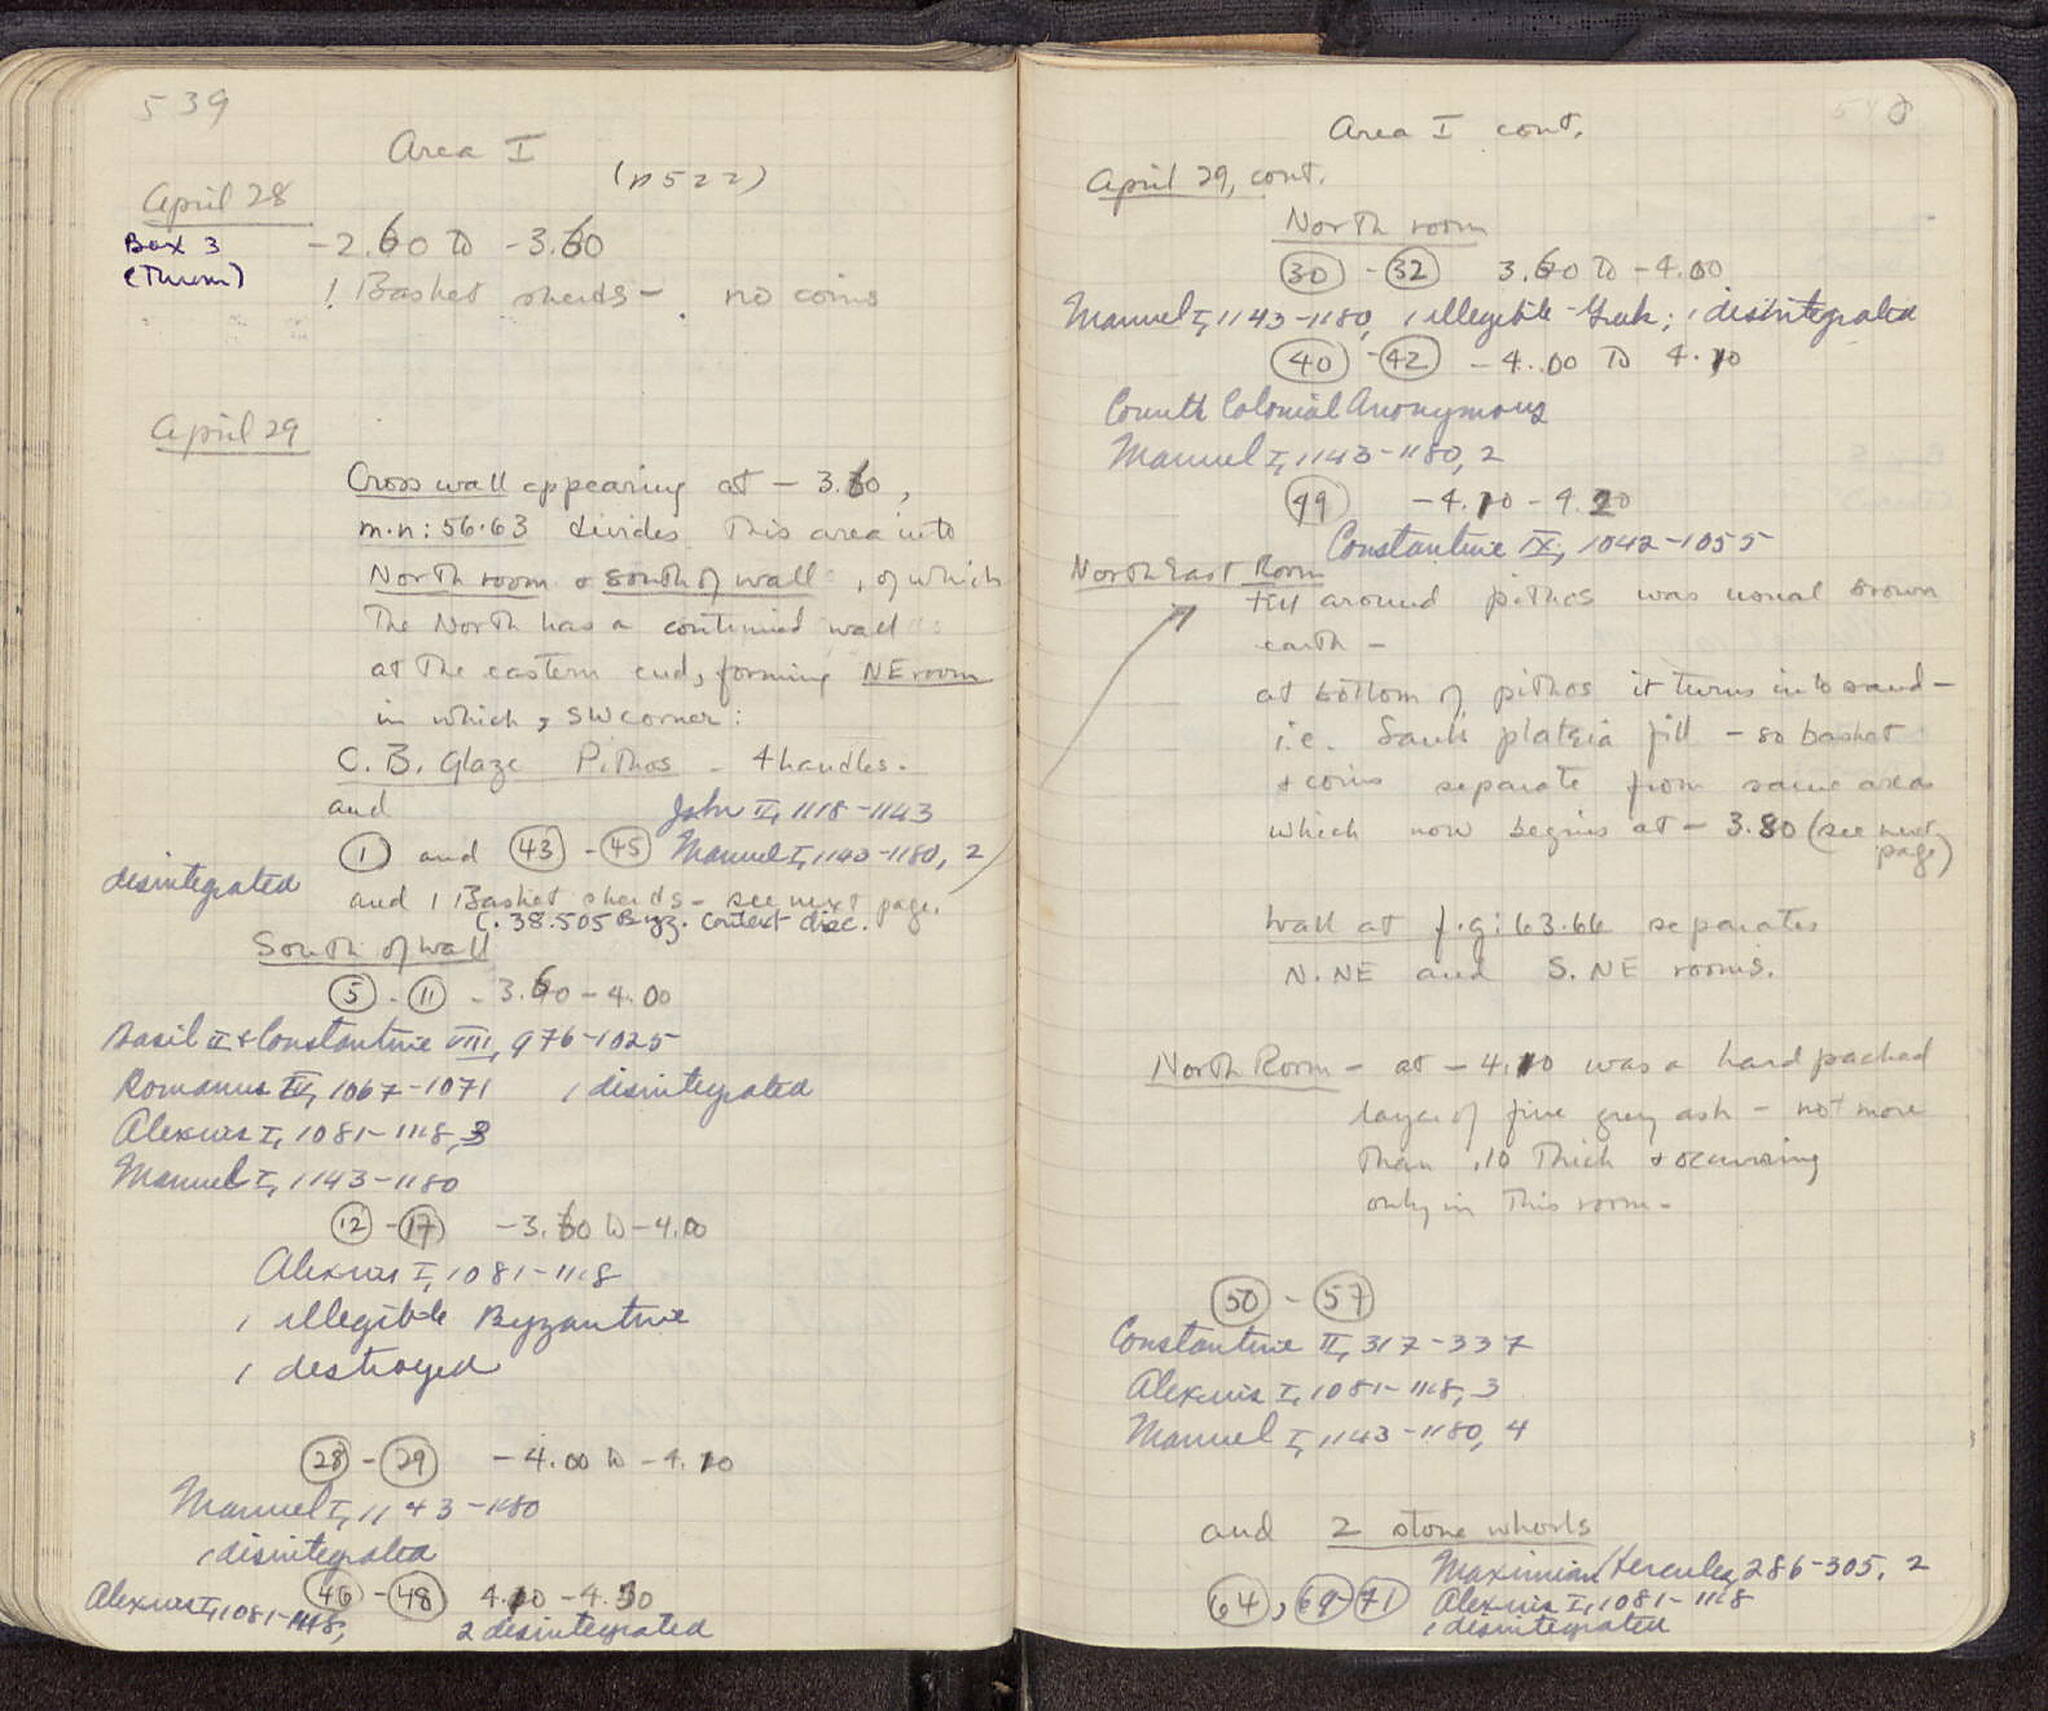 539
Area I
(p 522)
April 28
Box 3
(Thrown)
-2.60 to -3.60
1 Basket sherds - no coins
April 29
Cross wall appearing at - 3.60,
m.n: 56.63 divides This area into
North room & south of wall, of which
The North has a continued wall
at The eastern end, forming NE room
in which, SW corner:
C. B. Glaze Pithos - 4 handles.
and John II, 1118-1143
(1) and (43) - (45) Manuel I, 1143-1180, 2
disintegrated
and 1 Basket sherds - see next page.
C. 38.505 Byz. Context disc.
South of wall
(5) - (11) - 3.60 - 4.00
Basil II + Constantine VIII, 976-1025
Romanus IV, 1067-1071 1 disintegrated
Alexius I, 1081-1118, 3
Manuel I, 1143-1180
(12) - (17) -3.60 to -4.00
Alexius I, 1081-1118
1 illegible Byzantine
1 destroyed
(28) - (29) -4.00 to -4.10
Manuel I, 1143-1180
1 disintegrated
(46) - (48) 4.10 - 4.30
Alexius I, 1081-1118,
2 disintegrated
540
Area I cont.
April 29, cont.
North room
(30) - (32) 3.60 to -4.00
Manuel I, 1143-1180, 1 illegible Greek; 1 disintegrated
(40) - (42) -4.00 to 4.10
Corinth Colonial Anonymous
Manuel I, 1143-1180, 2
(49) -4.10 - 4.20
Constantine IX, 1042-1055
North East Room
Fill around pithos was usual brown
earth -
at bottom of pithos it turns into sand -
i.e. South plateia fill - so basket
& coins separate from same area
which now begins at - 3.80 (see next
page)
Wall at f.g: 63.66 separates
N. NE and S. NE rooms.
North Room - at - 4.10 was a hard packed
layer of fine grey ash - not more
than .10 Thick & occurring
only in This room -
(50) - (57)
Constantine II, 317-337
Alexius I, 1081-1118, 3
Manuel I, 1143-1180, 4
and 2 stone whorls
Maximian Hercules, 286-305, 2
(64), (69-71) Alexius I, 1081-1118
1 disintegrated